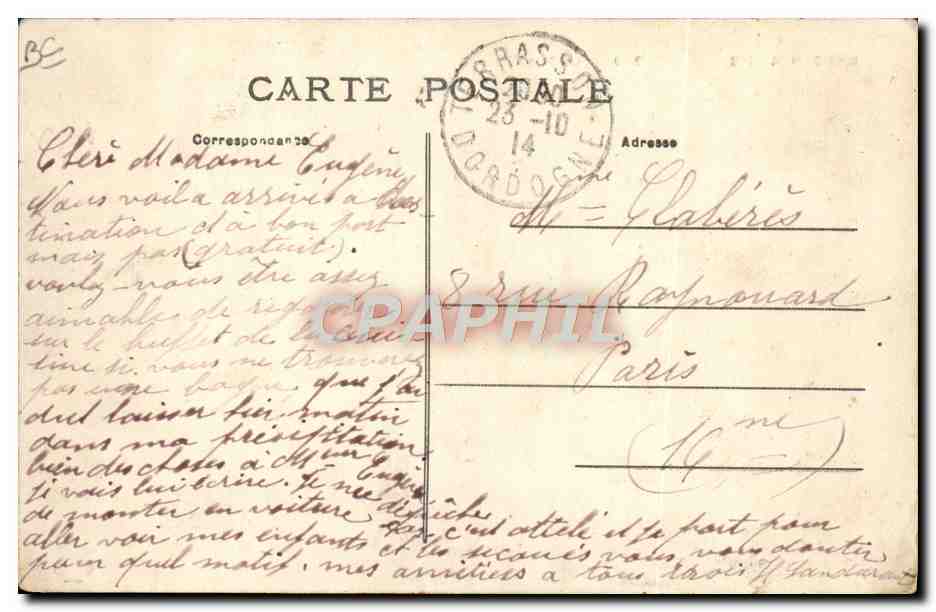 BC
CARTE POSTALE
TERRASSON
23-10
14
DORDOGNE
Correspondance
Adresse
Chère Madame Eugène
Nous voila arrivés a Des-
tination et à bon port
mais pas (gratuit).
voulez-vous être assez
aimables de regarder
sur le buffet de la cuisi
sine si vous ne trouverez
pas une bague que j'ai
dut laisser hier matin
dans ma précipitation.
bien des choses à Msieur Eugène
je vais lui écrire. Je me dépêche
de monter en voiture car c'est attelé et je part pour
aller voir mes enfants et les secoués vous vous doutez
pour quel motif. mes amitiés a tous trois
Mme Clabérès
8 rue Raynouard
Paris
(16me)
CPAPHIL